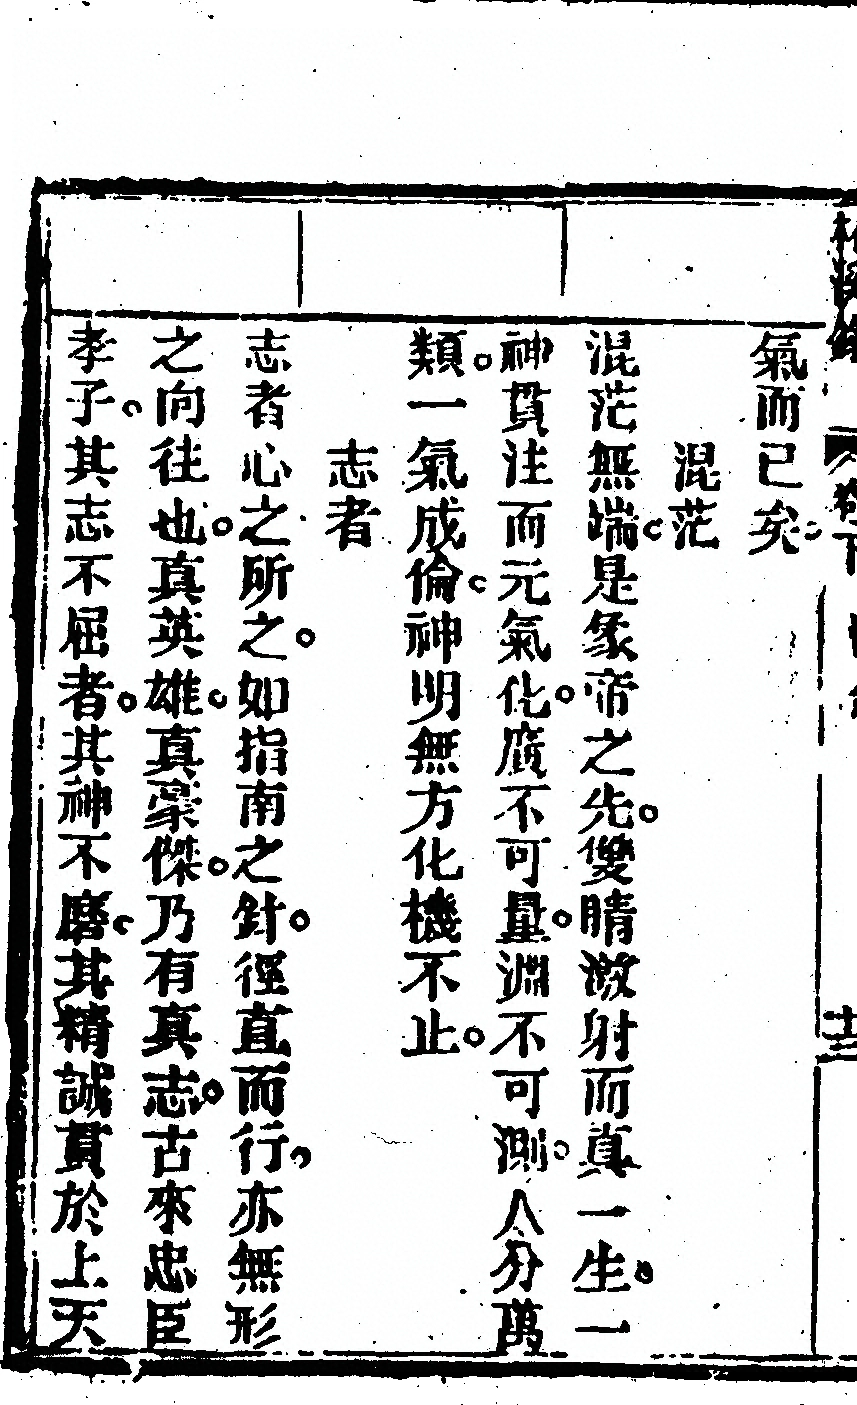 氣而已矣
混茫
混茫無端是象帝之先雙睛激射而真一生一
神貫注而元氣化廣不可量淵不可測人分萬
類一氣成倫神明無方化機不止
志者
志者心之所之如指南之針徑直而行亦無形
之向往也真英雄真豪傑乃有真志古來忠臣
孝子其志不屈者其神不磨其精誠貫於上天